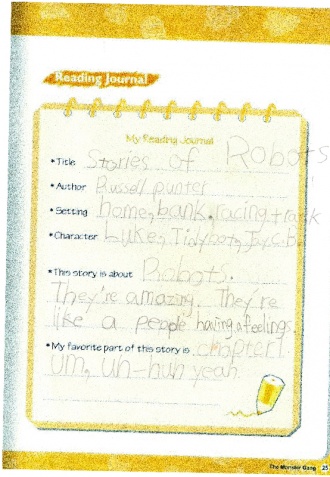 Reading Journal
My Reading Journal
• Title Stories of Robots
• Author Russell punter
• Setting home, bank, racing track
• Character Luke, Tinybot,
• This story is about Robots.
They're amazing. They're
like a people having a feelings
• My favorite part of this story is chapter 1.
um, uh-huh yeah.
The Monster Gang 25